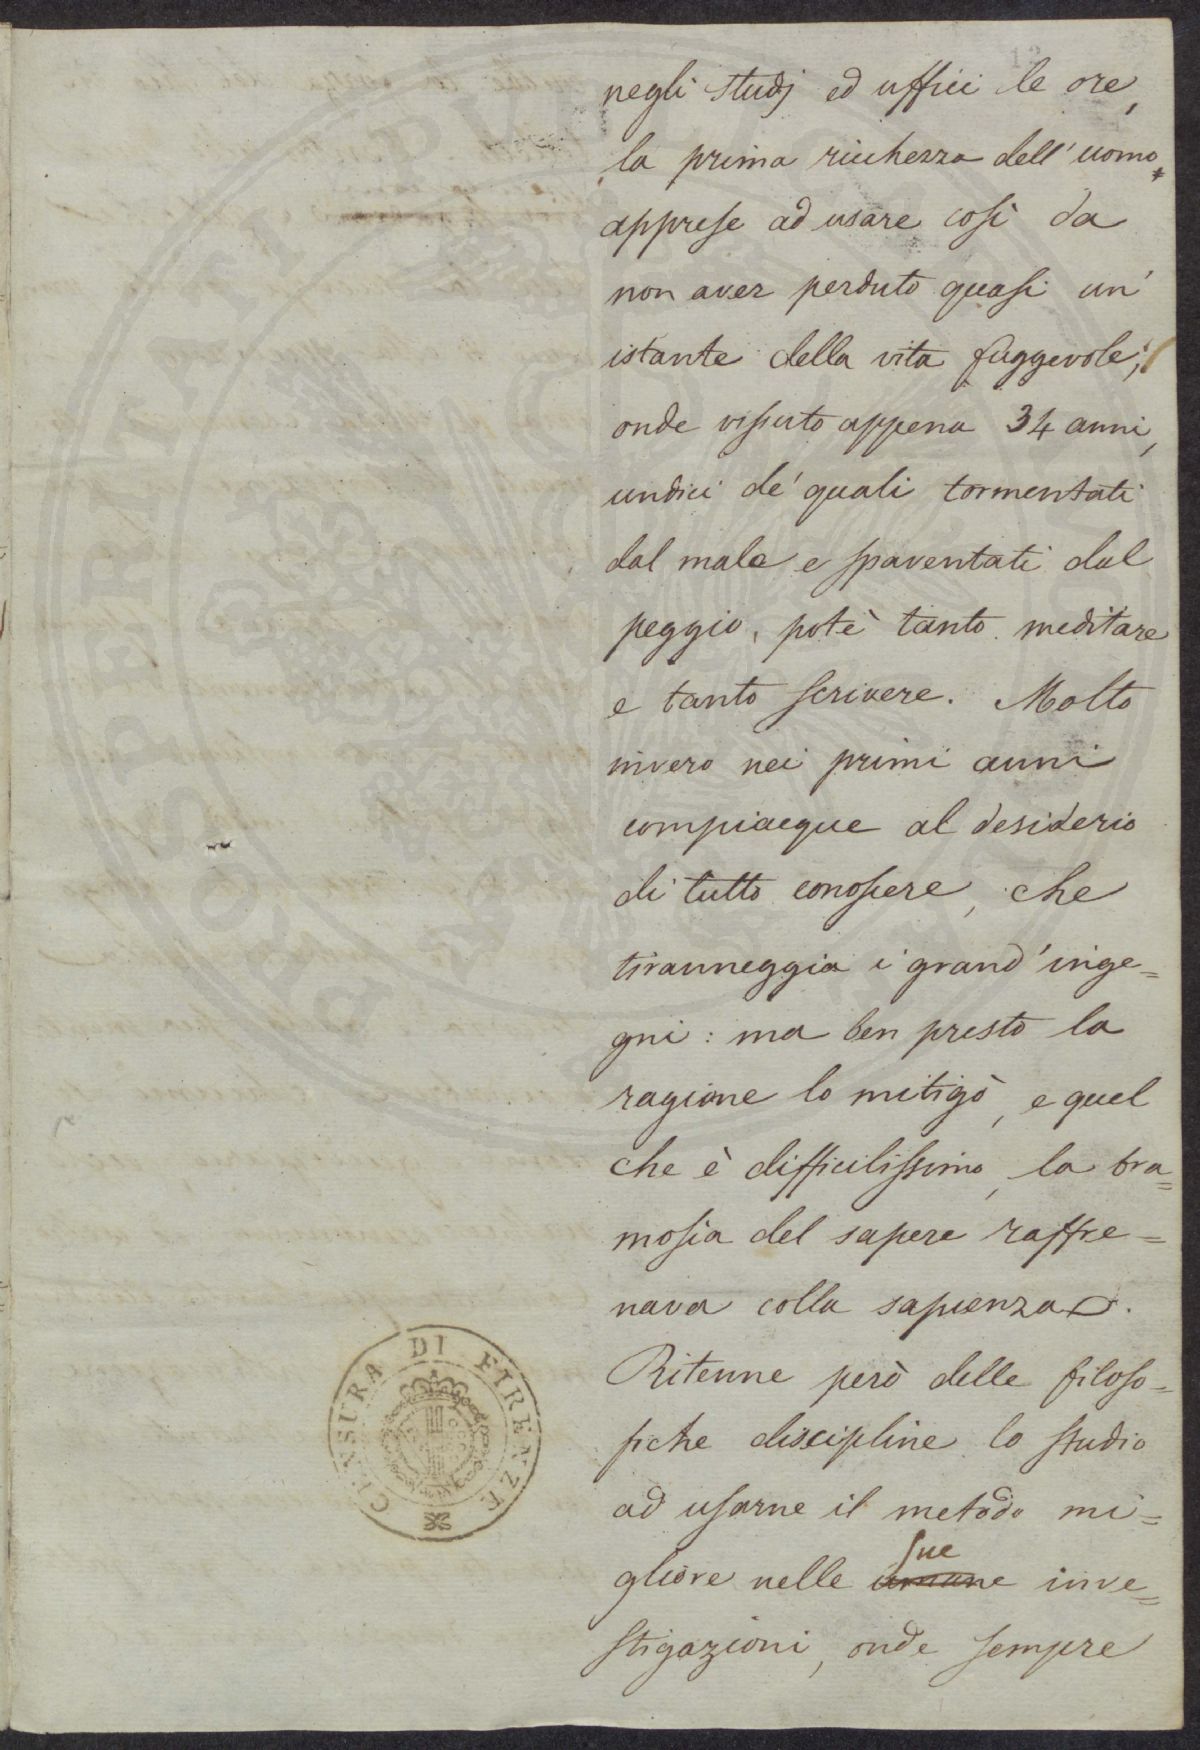 negli studj ed uffici le ore,
la prima ricchezza dell'uomo
apprese ad usare così da
non aver perduto quasi un'
istante della vita fuggevole;
onde vissuto appena 34 anni,
undici de' quali tormentati
dal male e spaventati dal
peggio, potè tanto meditare
e tanto scrivere. Molto
invero nei primi anni
compiacque al desiderio
di tutto conoscere, che
tiranneggia i grand'inge=
gni: ma ben presto la
ragione lo mitigò, e quel
che è difficilissimo, la bra=
mosia del sapere raffre=
nava colla sapienza.
Ritenne però delle filoso=
fiche discipline lo studio
ad usarne il metodo mi=
sue
gliore nelle umane inve=
stigazioni, onde sempre
CENSURA DI FIRENZE